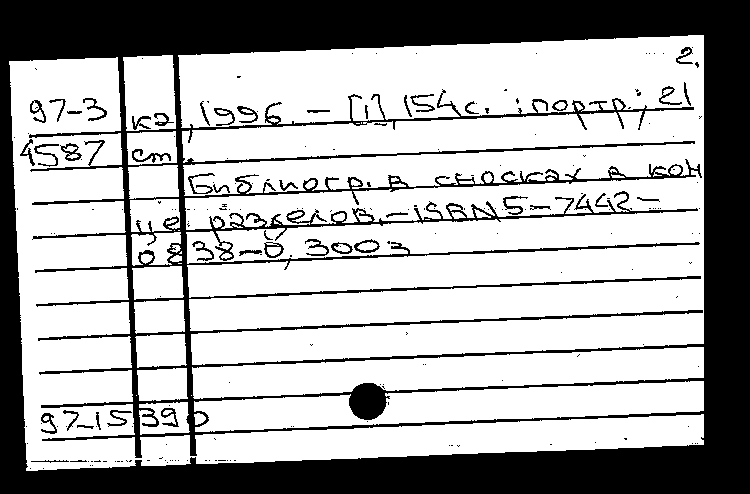 2.
97-3 ка, 1996. – [1], 154с. : портр.; 21
4587 см.
Библиогр. в сносках в кон
це разделов. – ISBN 5-7442-
0838-0, 300э
97-15390